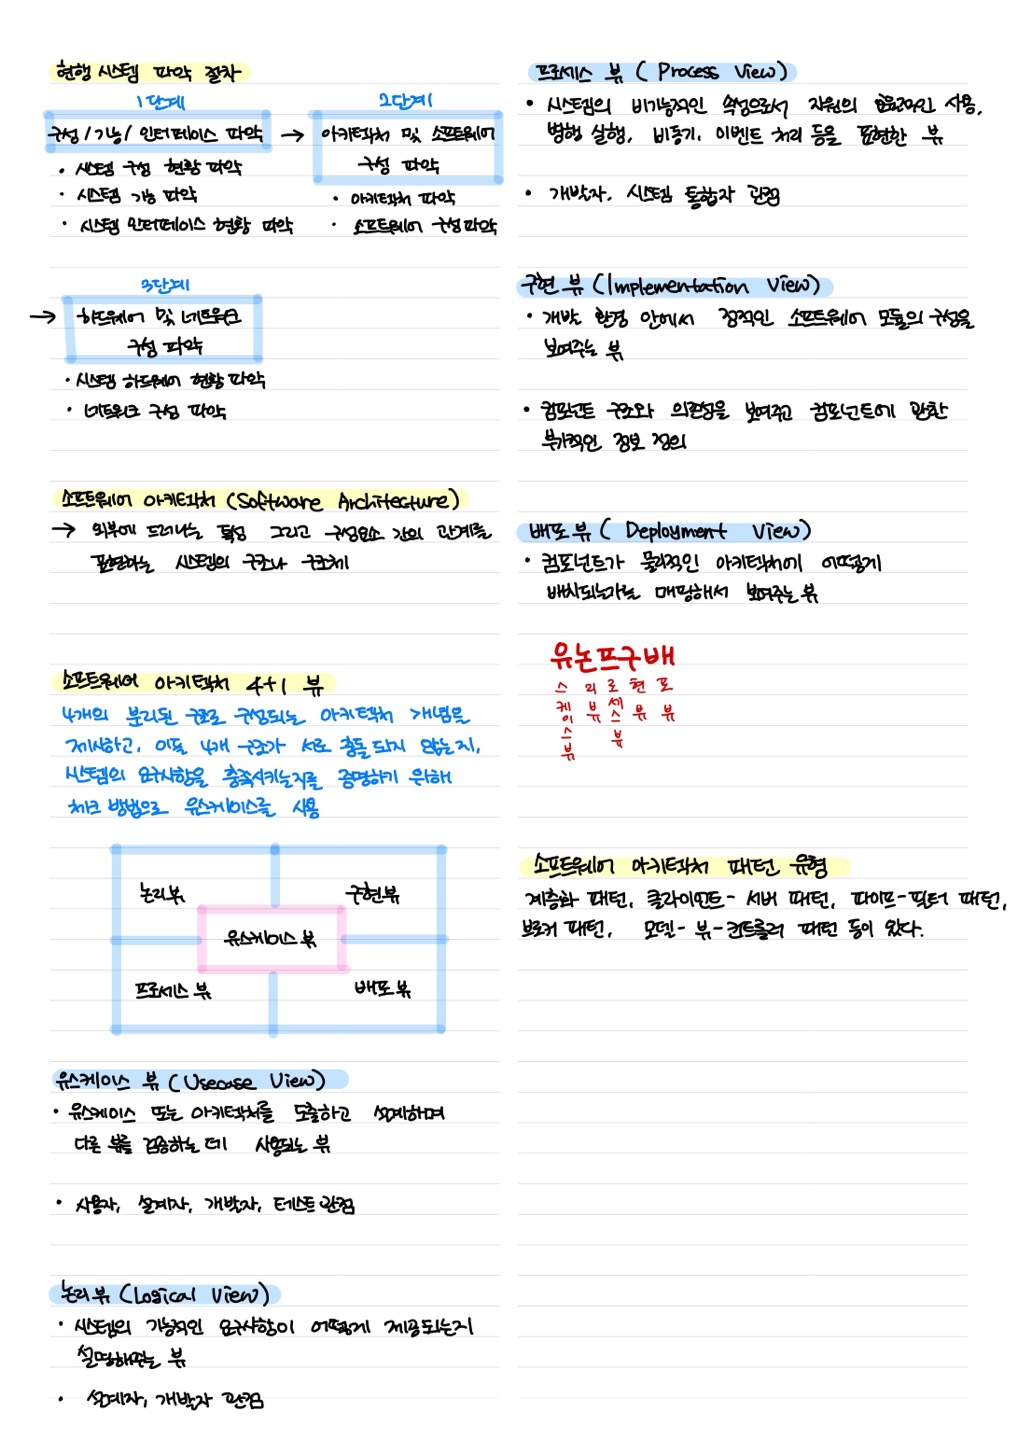 현행 시스템 파악 절차
1단계
구성/기능/인터페이스 파악 →
• 시스템 구성 현황 파악
• 시스템 기능 파악
• 시스템 인터페이스 현황 파악
2단계
아키텍처 및 소프트웨어
구성 파악
• 아키텍처 파악
• 소프트웨어 구성 파악
3단계
→ 하드웨어 및 네트워크
구성 파악
• 시스템 하드웨어 현황 파악
• 네트워크 구성 파악
소프트웨어 아키텍처 (Software Architecture)
→ 외부에 드러나는 특성 그리고 구성요소 간의 관계를
표현하는 시스템의 구조나 구조체
소프트웨어 아키텍처 4+1 뷰
4개의 분리된 구조로 구성되는 아키텍처 개념을
제시하고, 이들 4개 구조가 서로 충돌 되지 않는지,
시스템의 요구사항을 충족시키는지를 증명하기 위해
체크 방법으로 유스케이스를 사용
논리뷰
구현뷰
유스케이스 뷰
프로세스 뷰
배포 뷰
유스케이스 뷰 (Usecase View)
• 유스케이스 또는 아키텍처를 도출하고 설계하며
다른 뷰를 검증하는 데 사용되는 뷰
• 사용자, 설계자, 개발자, 테스트 관점
논리 뷰 (Logical View)
• 시스템의 기능적인 요구사항이 어떻게 제공되는지
설명해주는 뷰
• 설계자, 개발자 관점
프로세스 뷰 ( Process View)
• 시스템의 비기능적인 속성으로서 자원의 효율적인 사용,
병행 실행, 비동기, 이벤트 처리 등을 표현한 뷰
• 개발자, 시스템 통합자 관점
구현 뷰 (Implementation View)
• 개발 환경 안에서 정적인 소프트웨어 모듈의 구성을
보여주는 뷰
• 컴포넌트 구조와 의존성을 보여주고 컴포넌트에 관한
부가적인 정보 정의
배포 뷰 ( Deployment View)
• 컴포넌트가 물리적인 아키텍처에 어떻게
배치되는가를 매핑해서 보여주는 뷰
유논프구배
스리로현포
케뷰세뷰뷰
이스
스뷰
뷰
소프트웨어 아키텍처 패턴 유형
계층화 패턴, 클라이언트-서버 패턴, 파이프-필터 패턴,
브로커 패턴, 모델-뷰-컨트롤러 패턴 등이 있다.